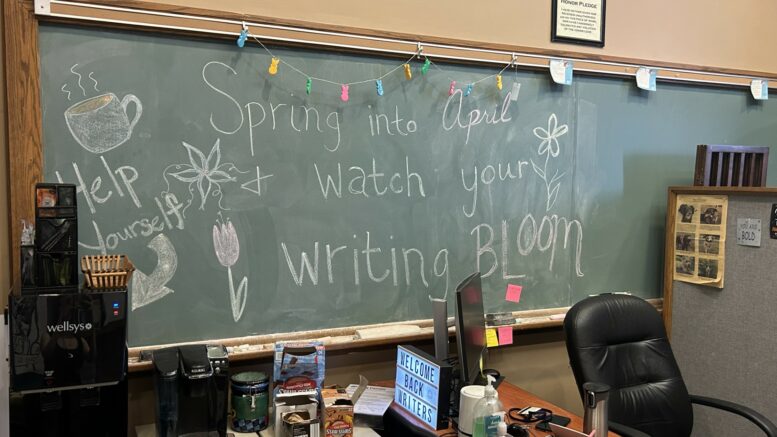 HONOR PLEDGE
Spring into April
Help
yourself
+ watch your
writing BLOOM
wellsys
YOU ARE
BOLD
WELCOME
BACK
WRITERS